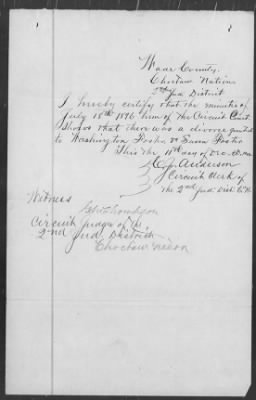 Wade County,
Choctaw Nation
2nd Jud. District
I hereby certify that the minutes of
July 18th 1896 term of the Circuit Court
Shows that there was a divorce granted
to Washington
This the 11th day of Dec.
E. J. Anderson
Circuit Clerk of
the 2nd Jud. Dist. C. N.
Witness
Thompson
Circuit Judge of the
2nd Jud. District
Choctaw Nation